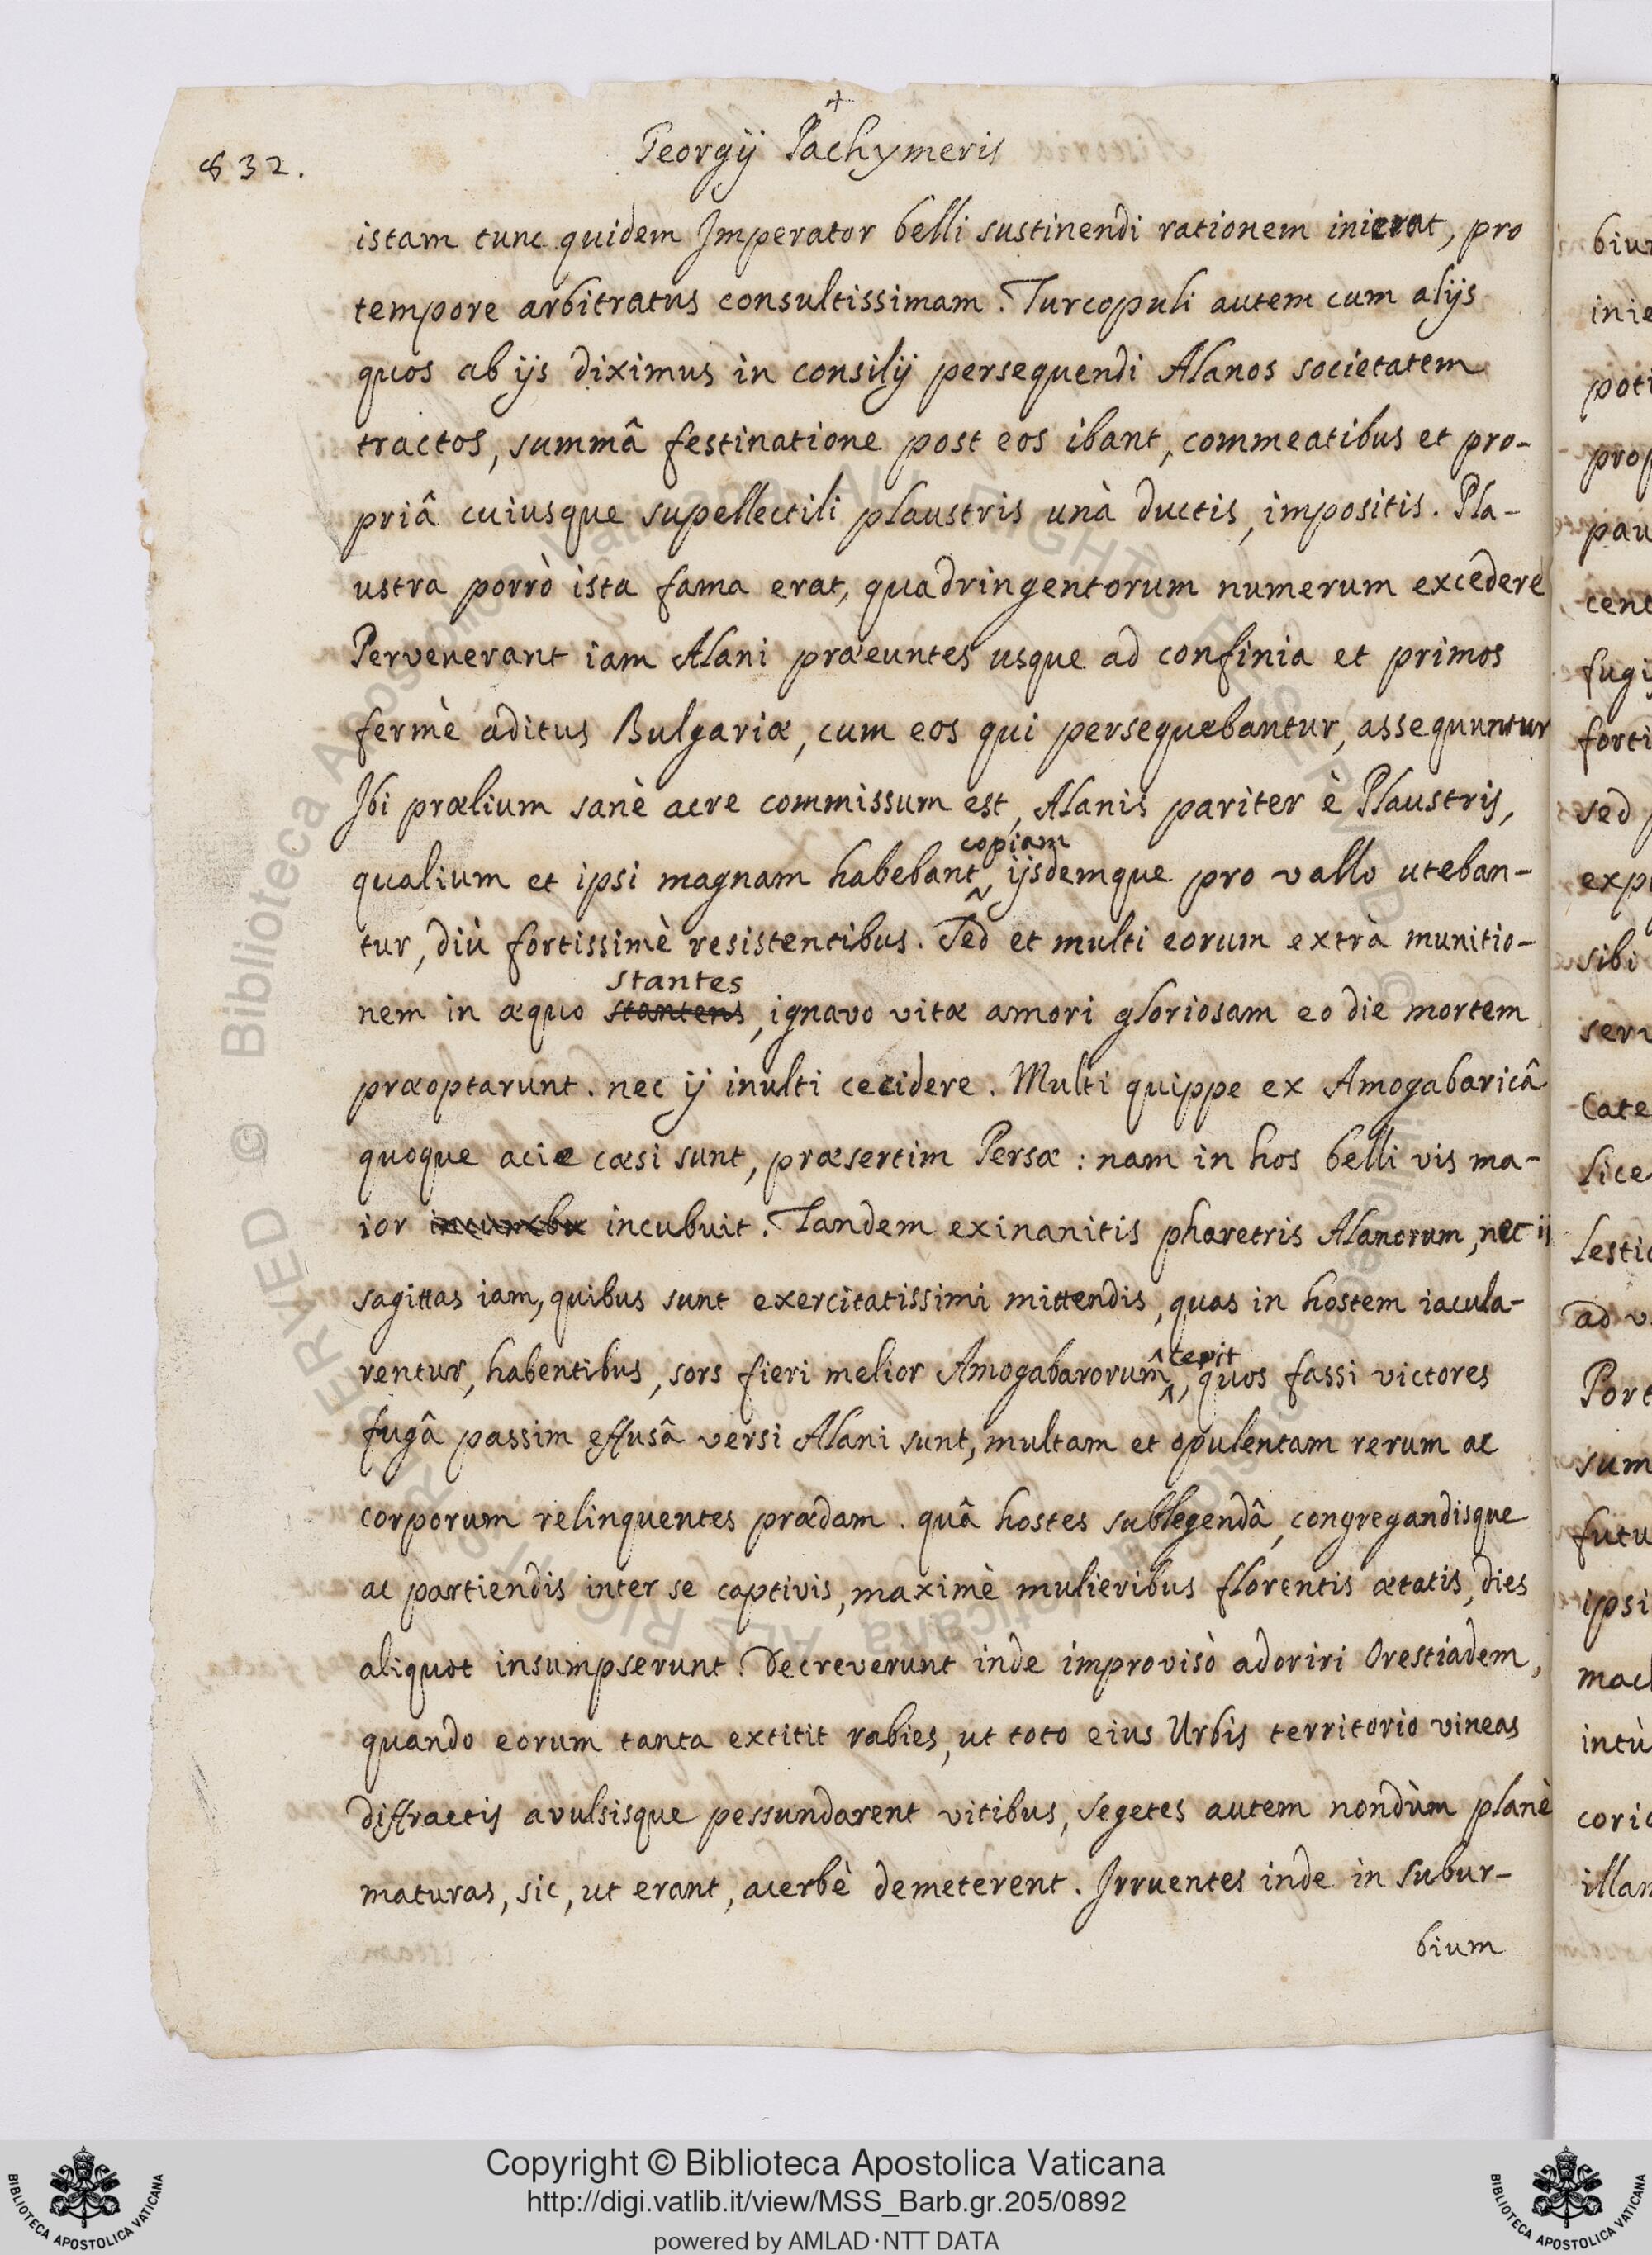 832.
Georgÿ Pachymeris
istam tunc quidem Imperator belli sustinendi rationem inierat, pro
tempore arbitratus consultissimam. Turcopuli autem cum alÿs
quos ab ÿs diximus in consilÿ persequendi Alanos societatem
tractos, summâ festinatione post eos ibant, commeatibus et pro-
priâ cuiusque supellectili plaustris unà ductis, impositis. Pla-
ustra porrò ista fama erat, quadringentorum numerum excedere
Pervenerant iam Alani præeuntes usque ad confinia et primos
fermè aditus Bulgariæ, cum eos qui persequebantur, assequuntur
Ibi prælium sanè acre commissum est, Alanis pariter è Plaustris,
copiam
qualium et ipsi magnam habebant ÿsdemque pro vallo uteban-
tur, diù fortissimè resistentibus. Sed et multi eorum extrà munitio-
stantes
nem in æquo stantens, ignavo vitæ amori gloriosam eo die mortem
præoptarunt. nec ÿ inulti cecidere. Multi quippe ex Amogabaricâ
quoque acie cæsi sunt, præsertim Persæ: nam in hos belli vis ma-
ior incubuit. Tandem exinanitis pharetris Alanorum, nec ij
sagittas iam, quibus sunt exercitatissimi mittendis, quas in hostem iacula-
cepit
rentur, habentibus, sors fieri melior Amogabarorum, quos fassi victores
fugâ passim effusâ versi Alani sunt, multam et opulentam rerum ac
corporum relinquentes prædam. quâ hostes sublegendâ, congregandisque
ac partiendis inter se captivis, maximè mulieribus florentis ætatis, dies
aliquot insumpserunt. Decreverunt inde improvisò adoriri Orestiadem,
quando eorum tanta extitit rabies, ut toto eius Urbis territorio vineas
diffractis avulsisque pessundarent vitibus, segetes autem nondùm planè
maturas, sic, ut erant, acerbè demeterent. Irruentes inde in subur-
bium
Copyright © Biblioteca Apostolica Vaticana
http://digi.vatlib.it/view/MSS_Barb.gr.205/0892
powered by AMLAD·NTT DATA